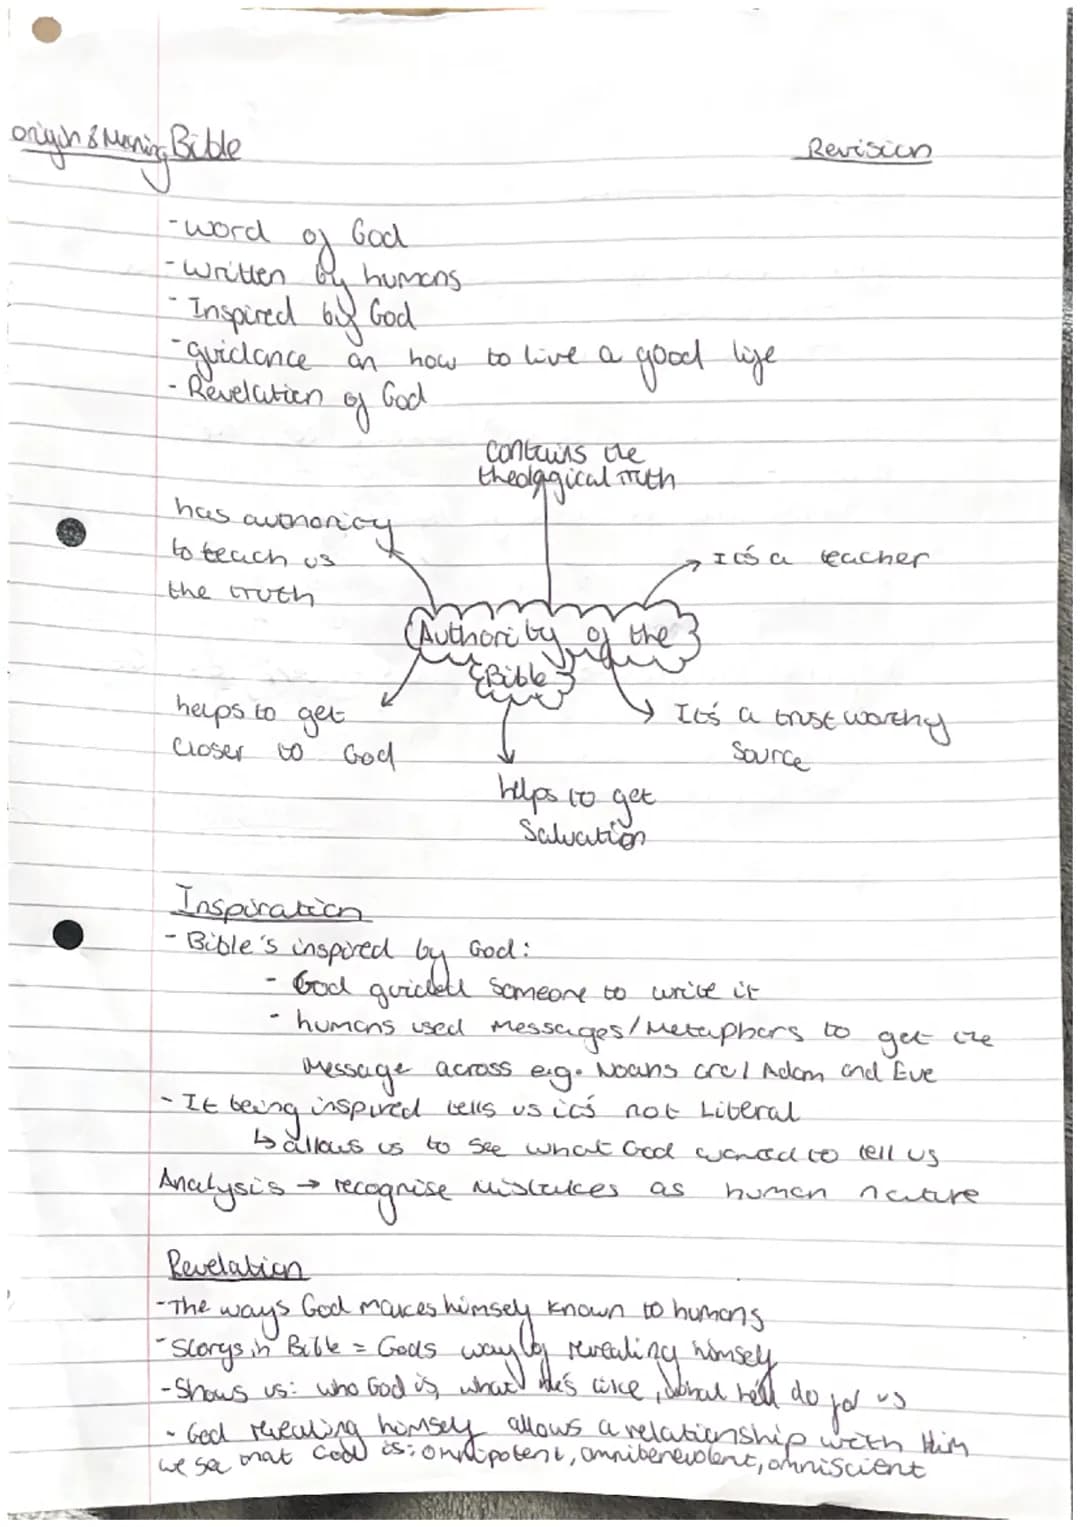 origin & Meaning Bible
Revision
-word of God
-written by humans
-Inspired by God
-guidance on how to live a good life
-Revelation of God
contains the
theological truth
has authority
to teach us
the truth
It's a teacher
Authority of the
Bible
helps to get
closer to God
It's a trustworthy
source
helps to get
Salvation
Inspiration
- Bible's inspired by God:
- God guided someone to write it
- humans used messages/Metaphors to get the
Message across e.g. Noahs arc/ Adam and Eve
-It being inspired tells us it's not Literal
↳ allows us to see what God wanted to tell us
Analysis → recognise mistakes as human nature
Revelation
-The ways God makes himself known to humans
-Storys in Bible = Gods way of revealing himself
-Shows us: who God is, what he's like, what he'll do for us
- God revealing himself allows a relationship with Him
we see that God is: omnipotent, omnibenevolent, omniscient